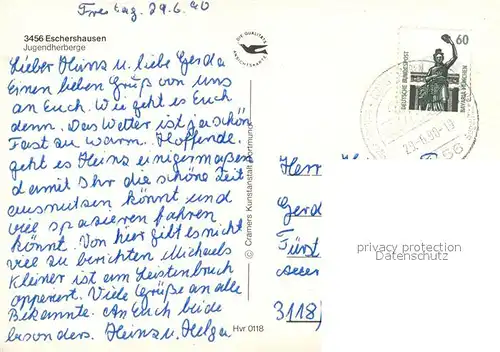 Freitag. 29.6.90
3456 Eschershausen
Jugendherberge
DIE QUALITÄTS
ANSICHTSKARTE
60
DEUTSCHE BUNDESPOST
BAVARIA MÜNCHEN
29.6.90-19
Lieber Heinz u. liebe Gerda
Einen lieben Gruß von uns
an Euch. Wie geht es Euch
denn. Das Wetter ist ja schön
Fast zu warm. Hoffende.
geht es Heinz einigermaßen
damit Ihr die schöne Zeit
ausnutzen könnt und
viel spazieren fahren
könnt. Von hier gibt es nicht
viel zu berichten Michaels
Kleiner ist am Leistenbruch
operiert. Viele Grüße an alle
Bekannte. An Euch beide
besonders. Heinz u. Helga
© Cramers Kunstanstalt Dortmund
Hvr 0118
Herr
Gerd
Fürst
3118
privacy protection
Datenschutz